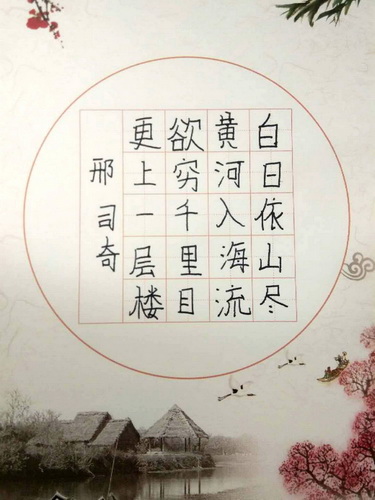 白日依山尽
黄河入海流
欲穷千里目
更上一层楼
邢司奇